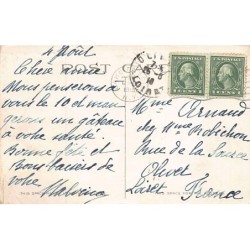 4 Août
POST
Chère amie
Nous penserons à
vous le 10 et man
gerons un gâteau
à votre santé.
Bonne fête et
Bons baisers de
votre
Malvina
OLIVET
LOIRET
Mme Arnaud
chez Mme Robichon
rue de la Source
Olivet
Loiret France